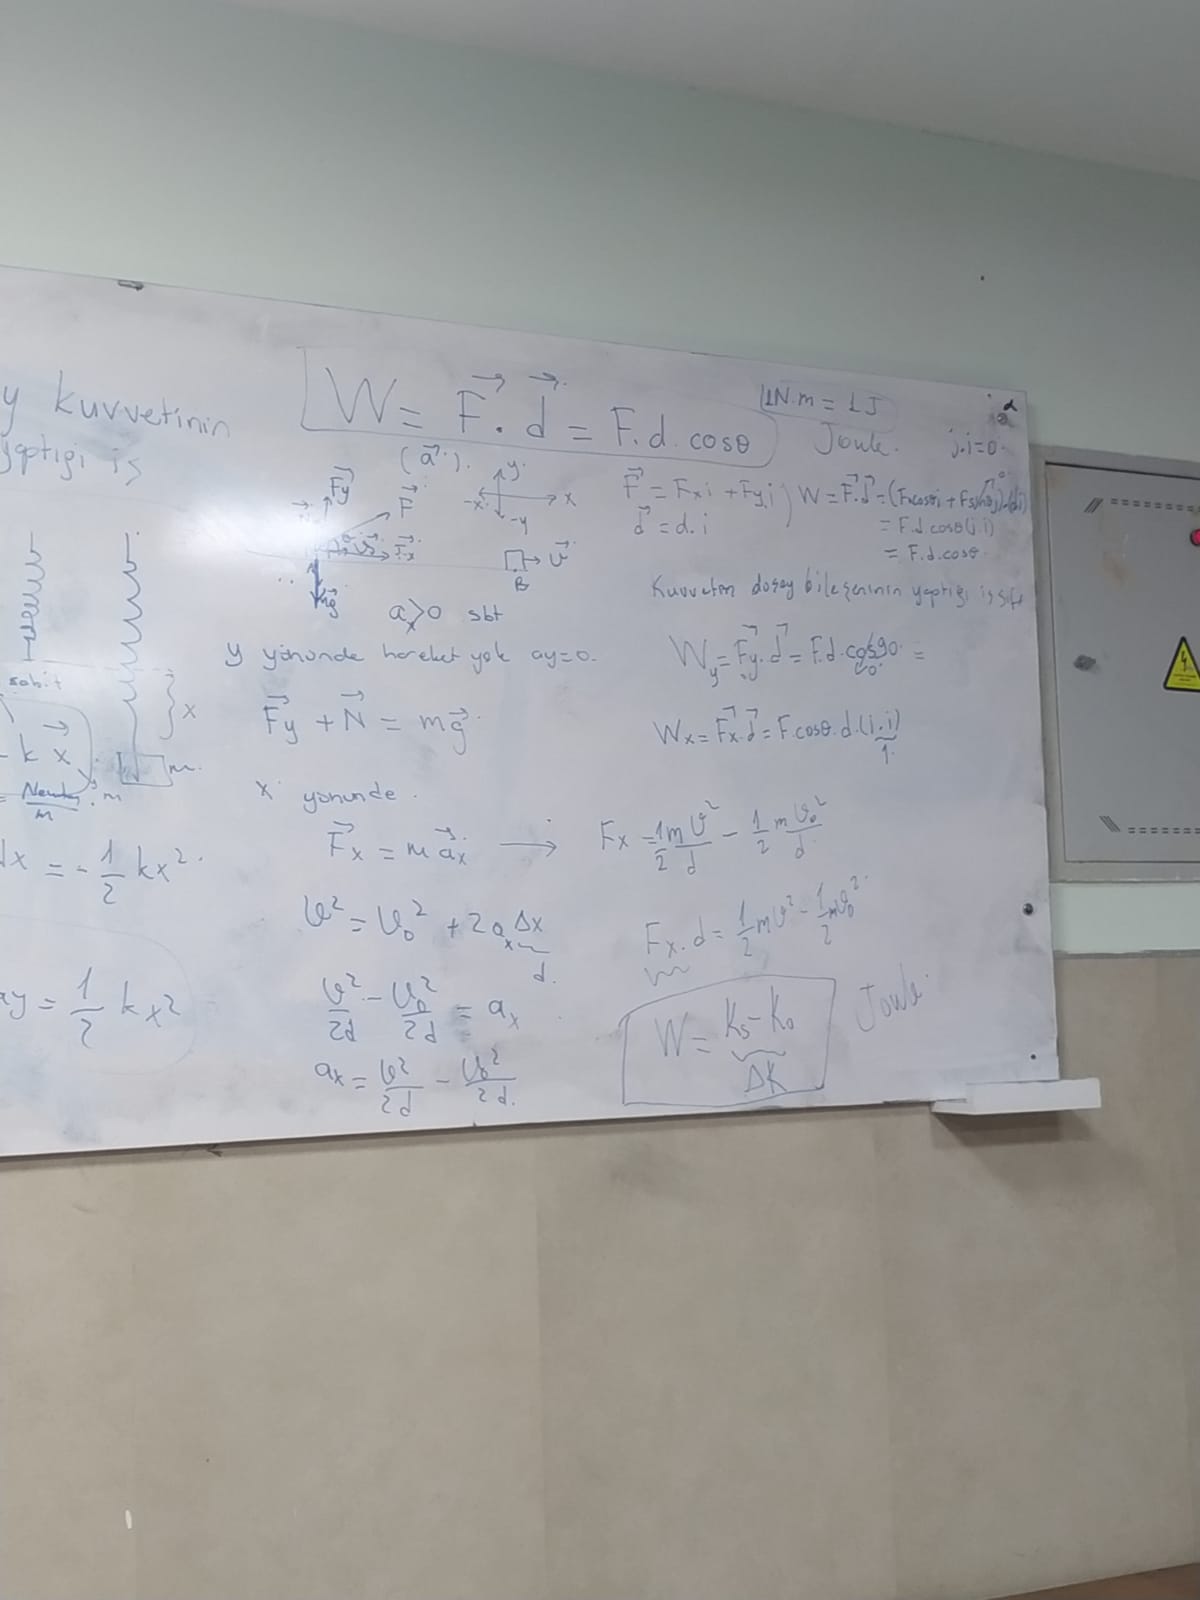 y kuvvetinin
yaptığı iş
sabit
x
k x⃗
m
= Newton/m . m
dx = -1/2 kx²
ay = 1/2 kx²
W = F⃗ . d⃗ = F.d.cosθ
(a⃗)
F⃗y
F⃗
F⃗x
mg⃗
y
-x
x
-y
B
v⃗
aₓ>0 sbt
y yönünde hareket yok ay=0.
F⃗y + N⃗ = mg⃗
x yönünde.
F⃗x = m a⃗x →
v² = v₀² + 2aₓΔx
d.
v²/2d - v₀²/2d = aₓ
ax = v²/2d - v₀²/2d.
1N.m = 1J
Joule.
j.i=0
F⃗ = Fxi + Fyj
d⃗ = d.i
W = F⃗.d⃗ = (Fxcosθi + Fsinθj).(di)
= F.d.cosθ(i.i)
= F.d.cosθ
Kuvvetin düşey bileşeninin yaptığı iş sıfır
Wy = F⃗y.d⃗ = F.d.cos90 =
0
Wx = F⃗x.d⃗ = F.cosθ.d.(i.i)
1
Fx = 1/2 m v²/d - 1/2 m v₀²/d
Fx.d = 1/2 mv² - 1/2 mv₀²
W = Ks - K₀
ΔK
Joule